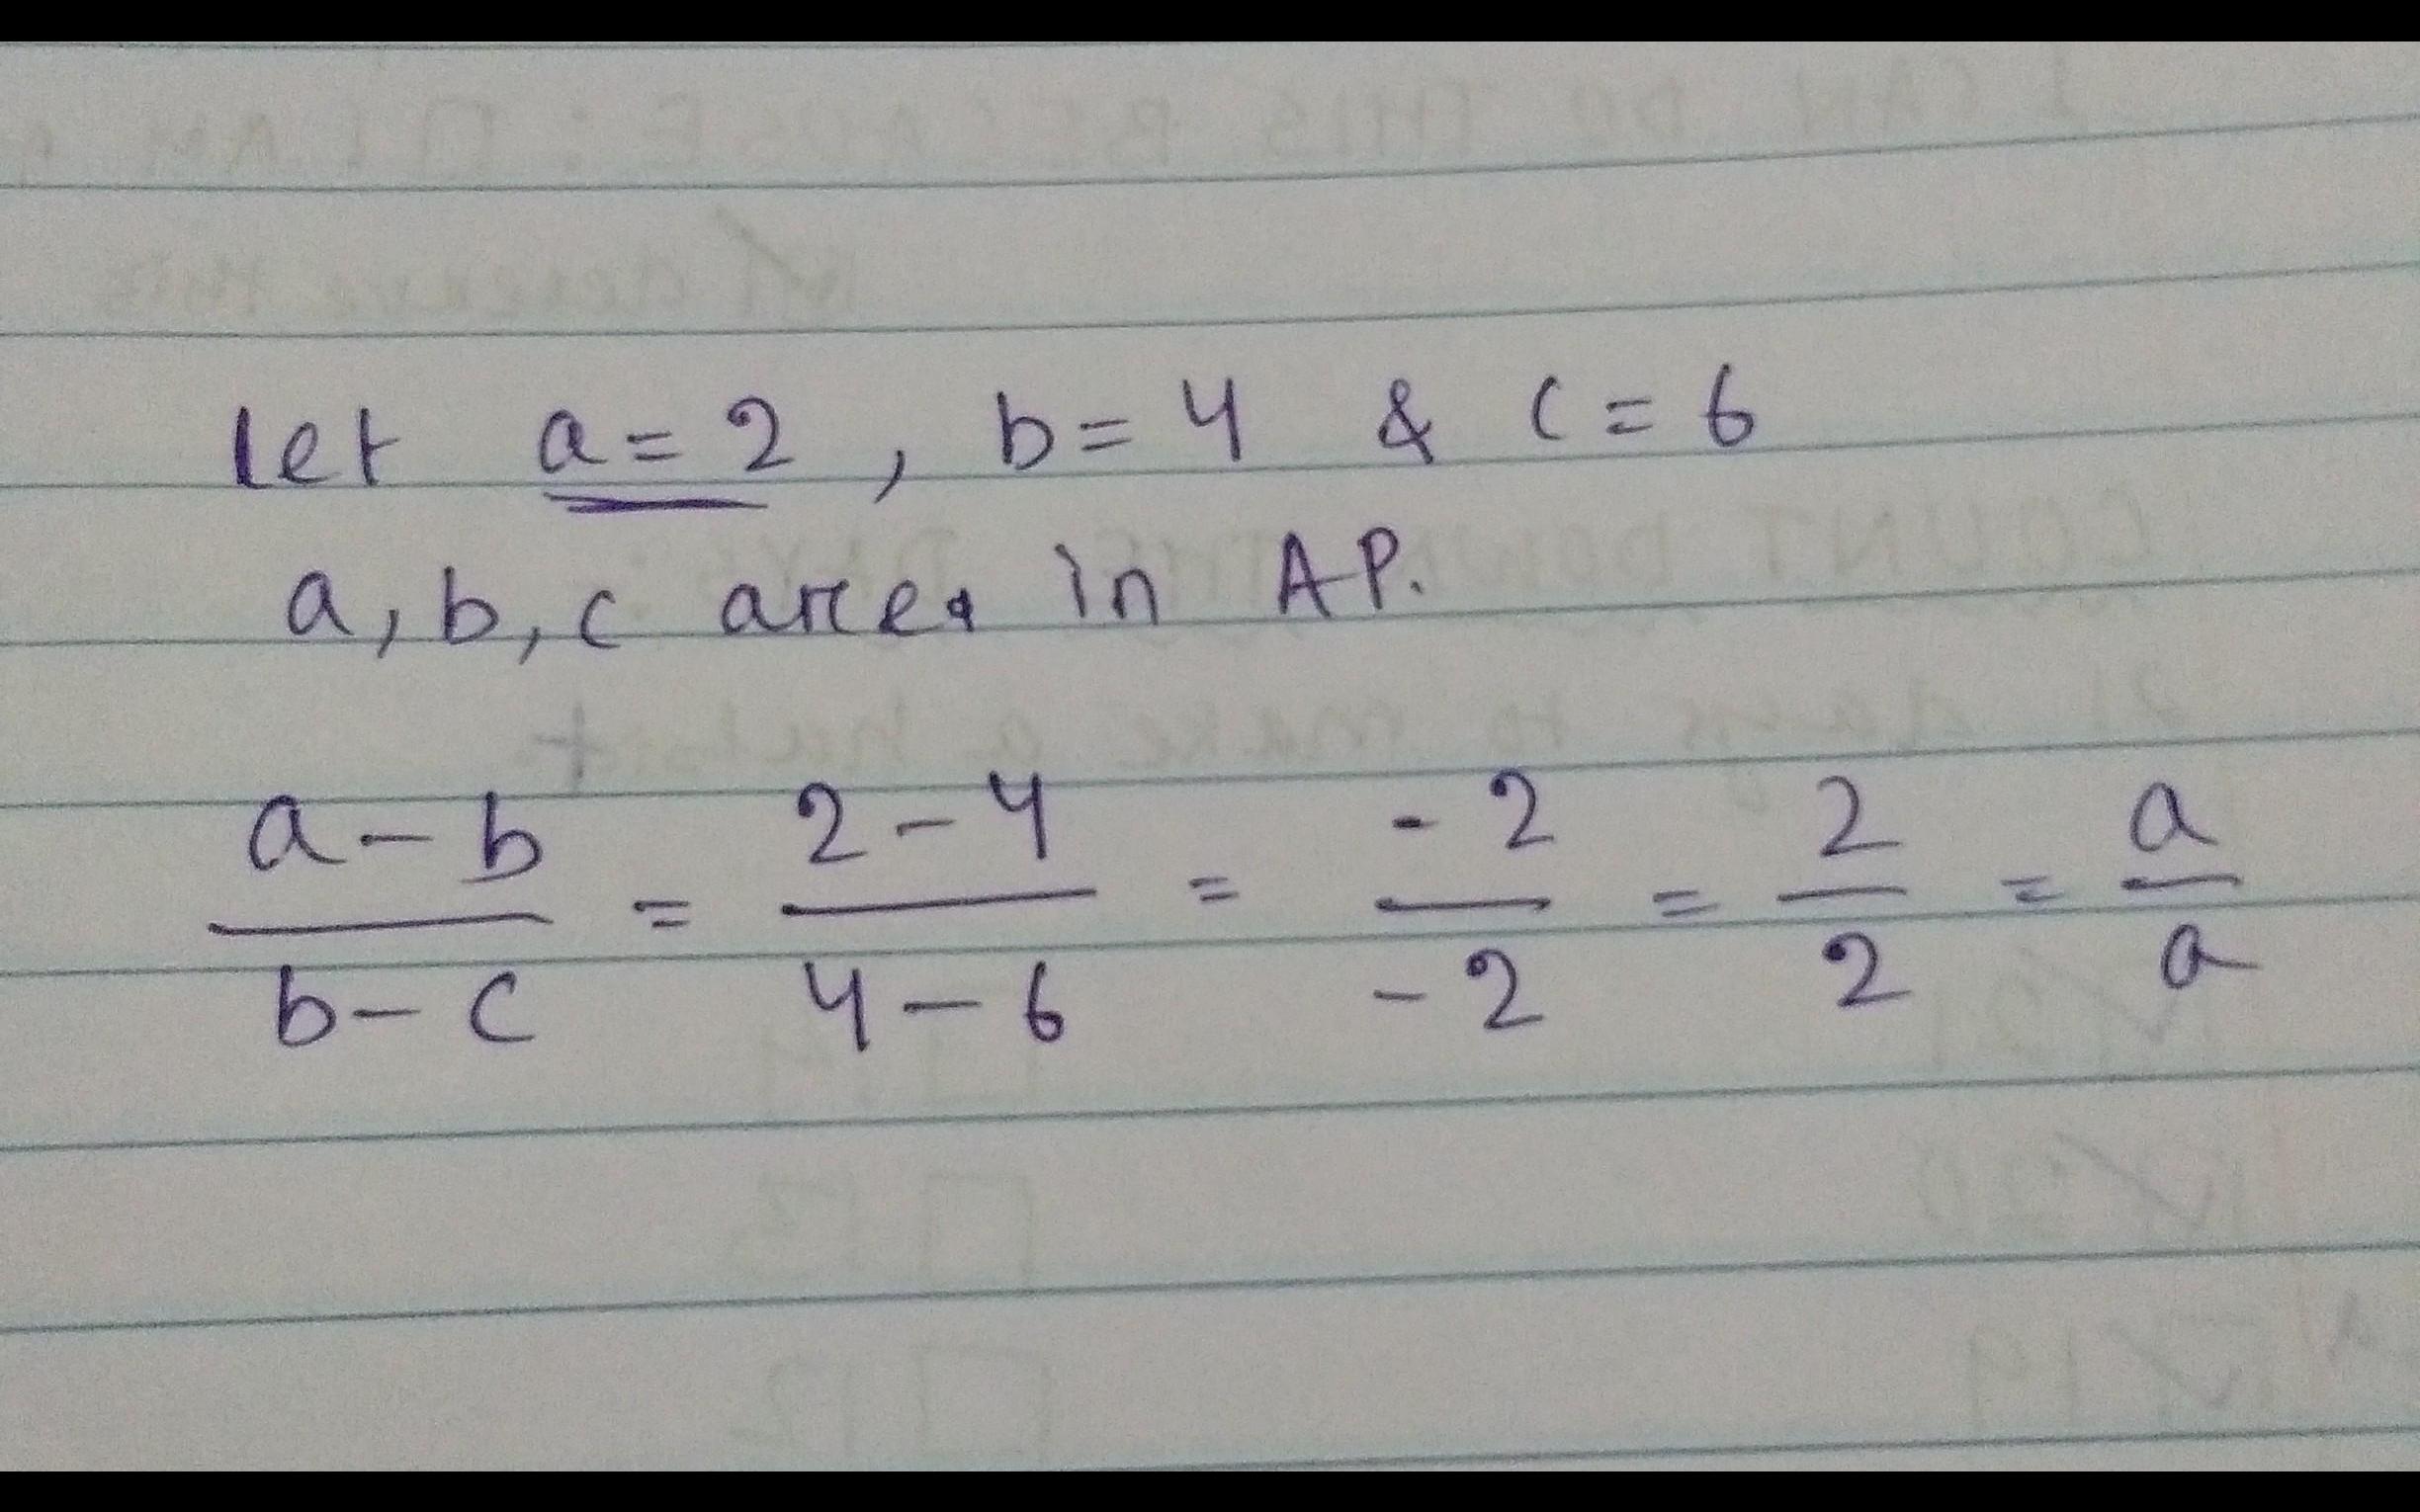 let a = 2 , b = 4 & c = 6
a, b, c are in AP.
a - b / b - c = 2 - 4 / 4 - 6 = - 2 / - 2 = 2 / 2 = a / a